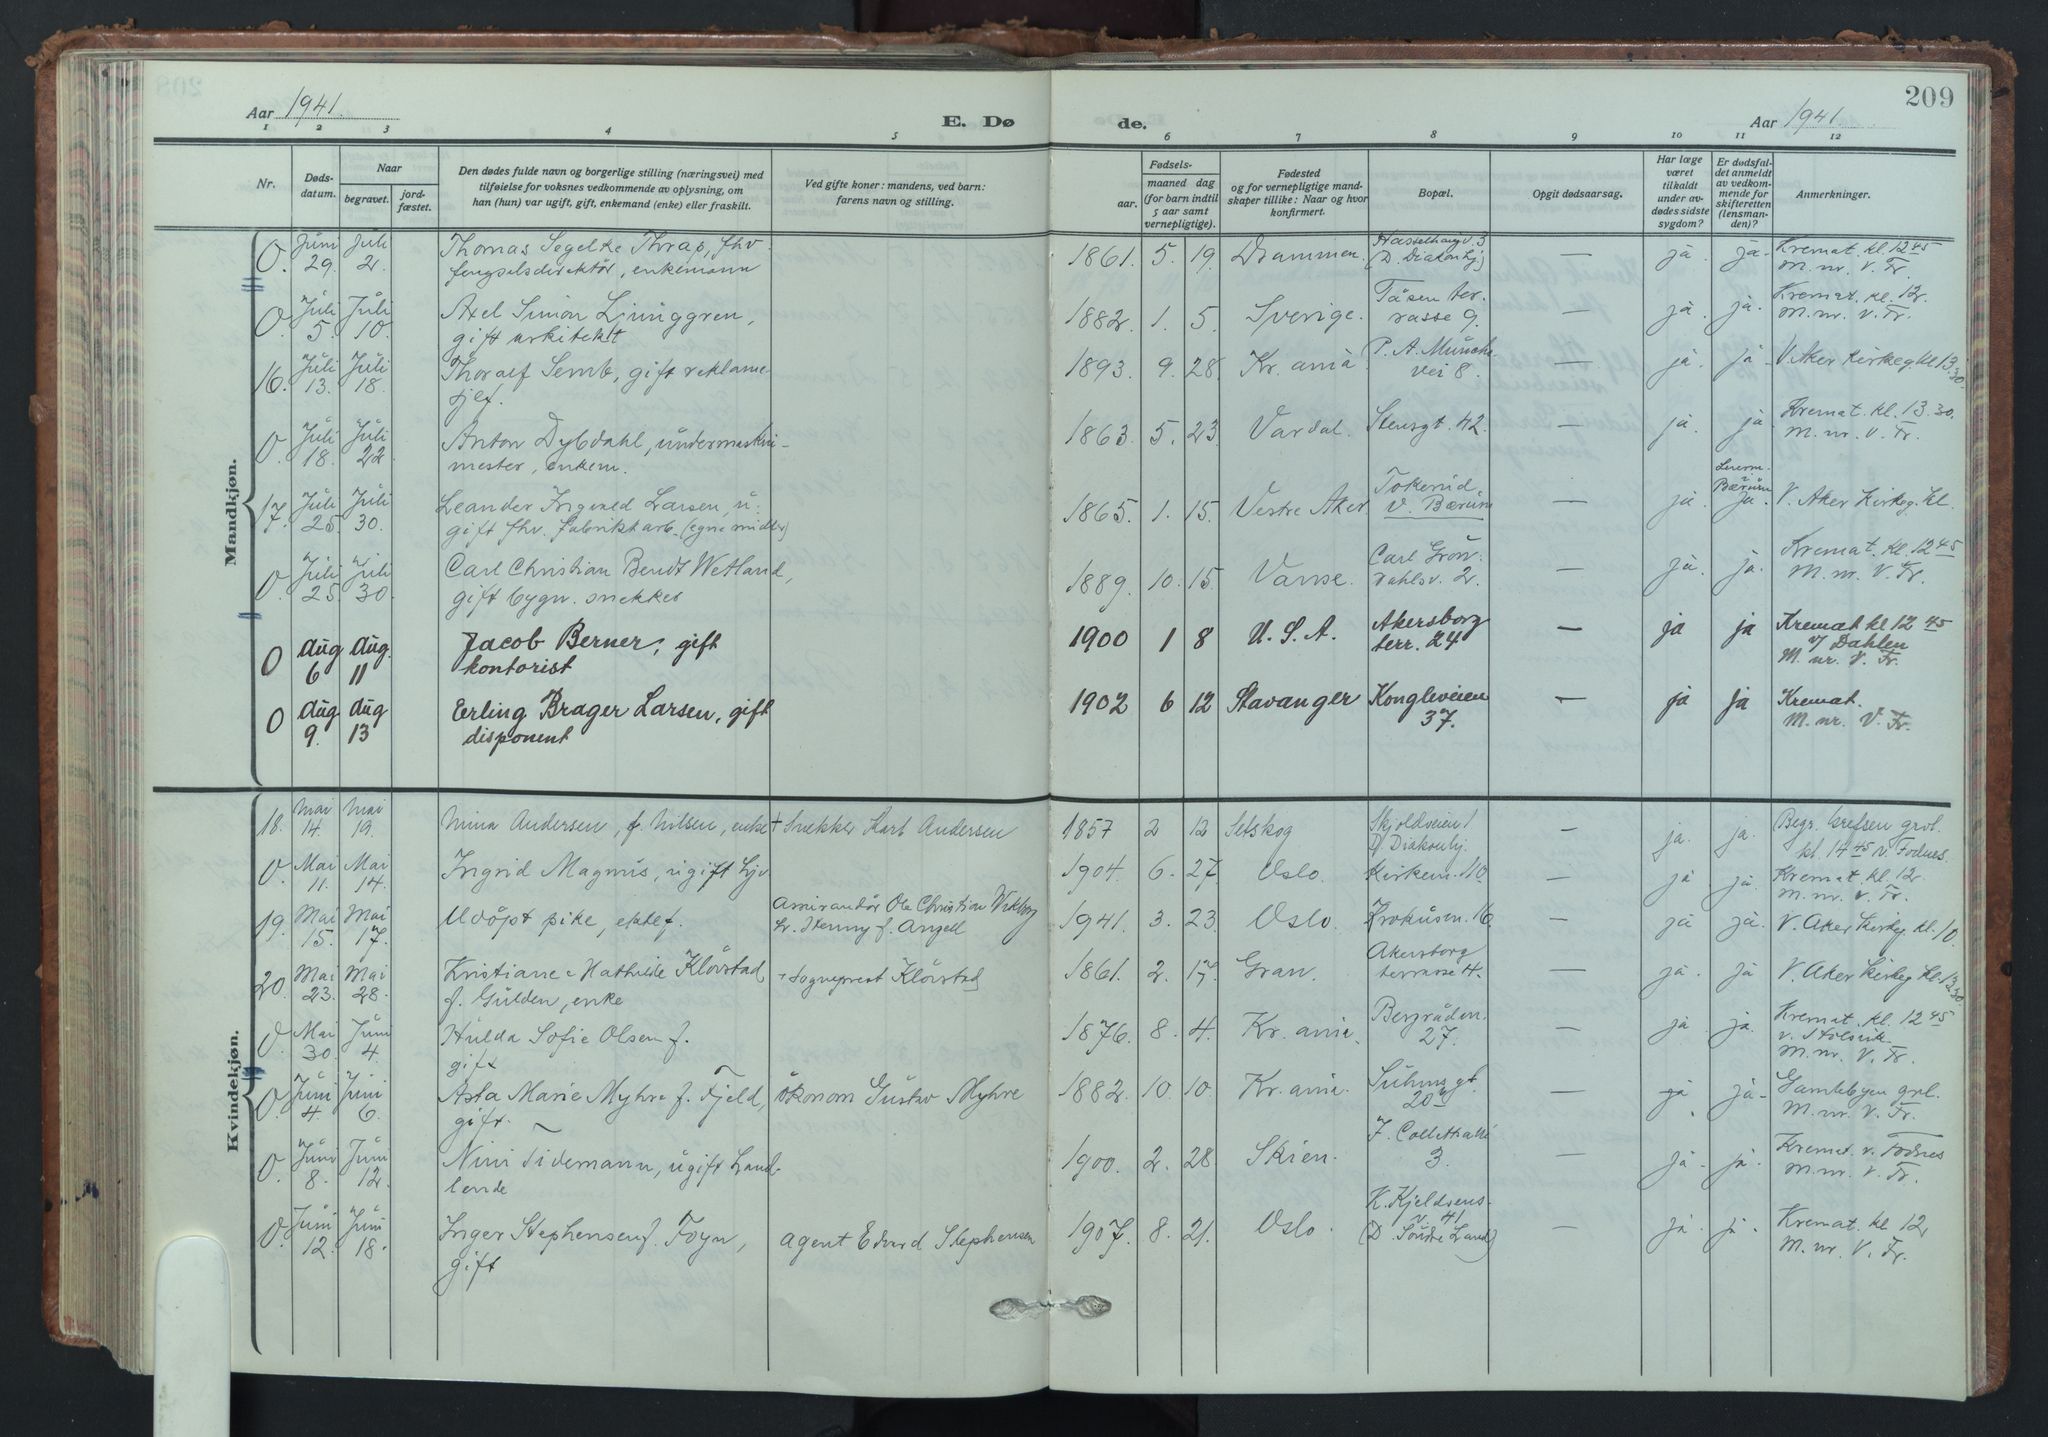 209
Aar 1941.
E. Dø
de.
Aar 1941.
1 2 3 4 5 6 7 8 9 10 11 12
Nr.
Døds-
datum.
Naar
begravet.
jord-
fæstet.
Den dødes fulde navn og borgerlige stilling (næringsvei) med
tilføielse for voksnes vedkommende av oplysning, om
han (hun) var ugift, gift, enkemand (enke) eller fraskilt.
Ved gifte koner: mandens, ved barn:
farens navn og stilling.
Fødsels-
aar.
maaned dag
(for barn indtil
5 aar samt
vernepligtige).
Fødested
og for vernepligtige mand-
skaper tillike: Naar og hvor
konfirmert.
Bopæl.
Opgit dødsaarsag.
Har læge
været
tilkaldt
under av-
dødes sidste
sygdom?
Er dødsfal-
det anmeldt
av vedkom-
mende for
skifteretten
(lensman-
den)?
Anmerkninger.
Mandkjøn.
0. Juni 29. Juli 2. Thomas Segelke Thrap, fhv. 1861. 5. 19. Drammen. Hasselhaugv. 3 ja ja Kremat. kl. 12 45
fengselsdirektør, enkemann (D. Diakonhj.) M. nr. V. Fr.
0. Juli 5. Juli 10. Axel Simon Ljunggren, 1882. 1. 5. Sverige. Tåsen ter- — ja. ja. Kremat. kl. 12.
gift arkitekt rasse 9. M. nr. V. Fr.
16. Juli 13. Juli 18. Thoralf Semb, gift reklame- 1893. 9. 28. Kr.ania P. A. Munchs — ja ja V. Aker Kirkeg. kl 13.30.
sjef. vei 8.
0. Juli 18. Juli 22 Anton Dybdahl, undermaskin- 1863. 5. 23. Vardal. Stensgt. 42. — ja. ja. Kremat. kl. 13.30.
mester, enkem. M. nr. V. Fr.
17. Juli 25. Juli 30. Leander Ingvald Larsen, u- 1865. 1. 15. Vestre Aker — ja Bærum ja V. Aker Kirkeg. kl.
gift fhv. fabrikkarb. (egne midler) V. Bærum
0. Juli 25. Juli 30. Carl Christian Berndt Wetland, 1889. 10. 15. Vanse. Carl Grøn- — ja. ja. Kremat. kl. 12 45
gift bygn. snekker dahlsv. 2. M. nr. V. Fr.
0 Aug 6 Aug. 11 Jacob Berner, gift 1900 1 8 U. S. A. Akersborg — ja ja Kremat kl 12 45
kontorist terr. 24 v/ Dahlen
M. nr. V. Fr.
0 Aug 9. Aug 13 Erling Brager Larsen, gift 1902 6 12 Stavanger Kongleveien — ja ja Kremat.
disponent 37. M. nr. V. Fr.
Kvindekjøn.
18. Mai 14. Mai 19. Nina Andersen, f. Nilsen, enke + Snekker Karl Andersen 1857 2 12 Setskog Skjoldveien 1 — ja. ja. Begr. Grefsen grvl.
D. Diakonhj. kl. 14 45 v. Fodnes.
0. Mai 11. Mai 14. Ingrid Magnus, ugift 1904. 6. 27. Oslo. Kirkev. 110. — ja ja. Kremat. kl. 12.
M. nr. V. Fr.
19. Mai 15. Mai 17. Udöpt pike, ektef. Ole Christian Wikborg 1941. 3. 23. Oslo. Krokusv. 16. — ja ja. V. Aker Kirkeg. kl. 10.
Henny f. Angell
20. Mai 23. Mai 28. Kristiane Mathilde Klövstad + sogneprest Klövstad 1861. 2. 17. Gran. Akersborg — ja. ja V. Aker Kirkeg. kl. 13.30
f. Gulden, enke terrasse 4.
0. Mai 30. Juni 4. Hulda Sofie Olsen f. 1876. 8. 4. Kr.ania. 27. — ja ja. Kremat. kl. 12 45
gift M. nr. V. Fr.
0. Juni 4. Juni 6. Asta Marie Myhre f. Fjeld, ökonom Gustav Myhre 1882. 10. 10. Kr.ania. Suhms gt. — ja ja. Gamlebyen grvl.
gift. 20 M. nr. V. Fr.
0. Juni 8. Juni 12. Nini Tidemann, ugift 1900. 2. 28 Skien. 3. — ja. ja. Kremat. v. Fodnes
M. nr. V. Fr.
0. Juni 12. Juni 18. Inger Stephensen f. Foyn, agent Edvard Stephensen 1907. 8. 21. Oslo. K. Kjeldsens- — ja. ja. Kremat. kl. 12
gift v. 41 M. nr. V. Fr.
(D. Söndre Land)